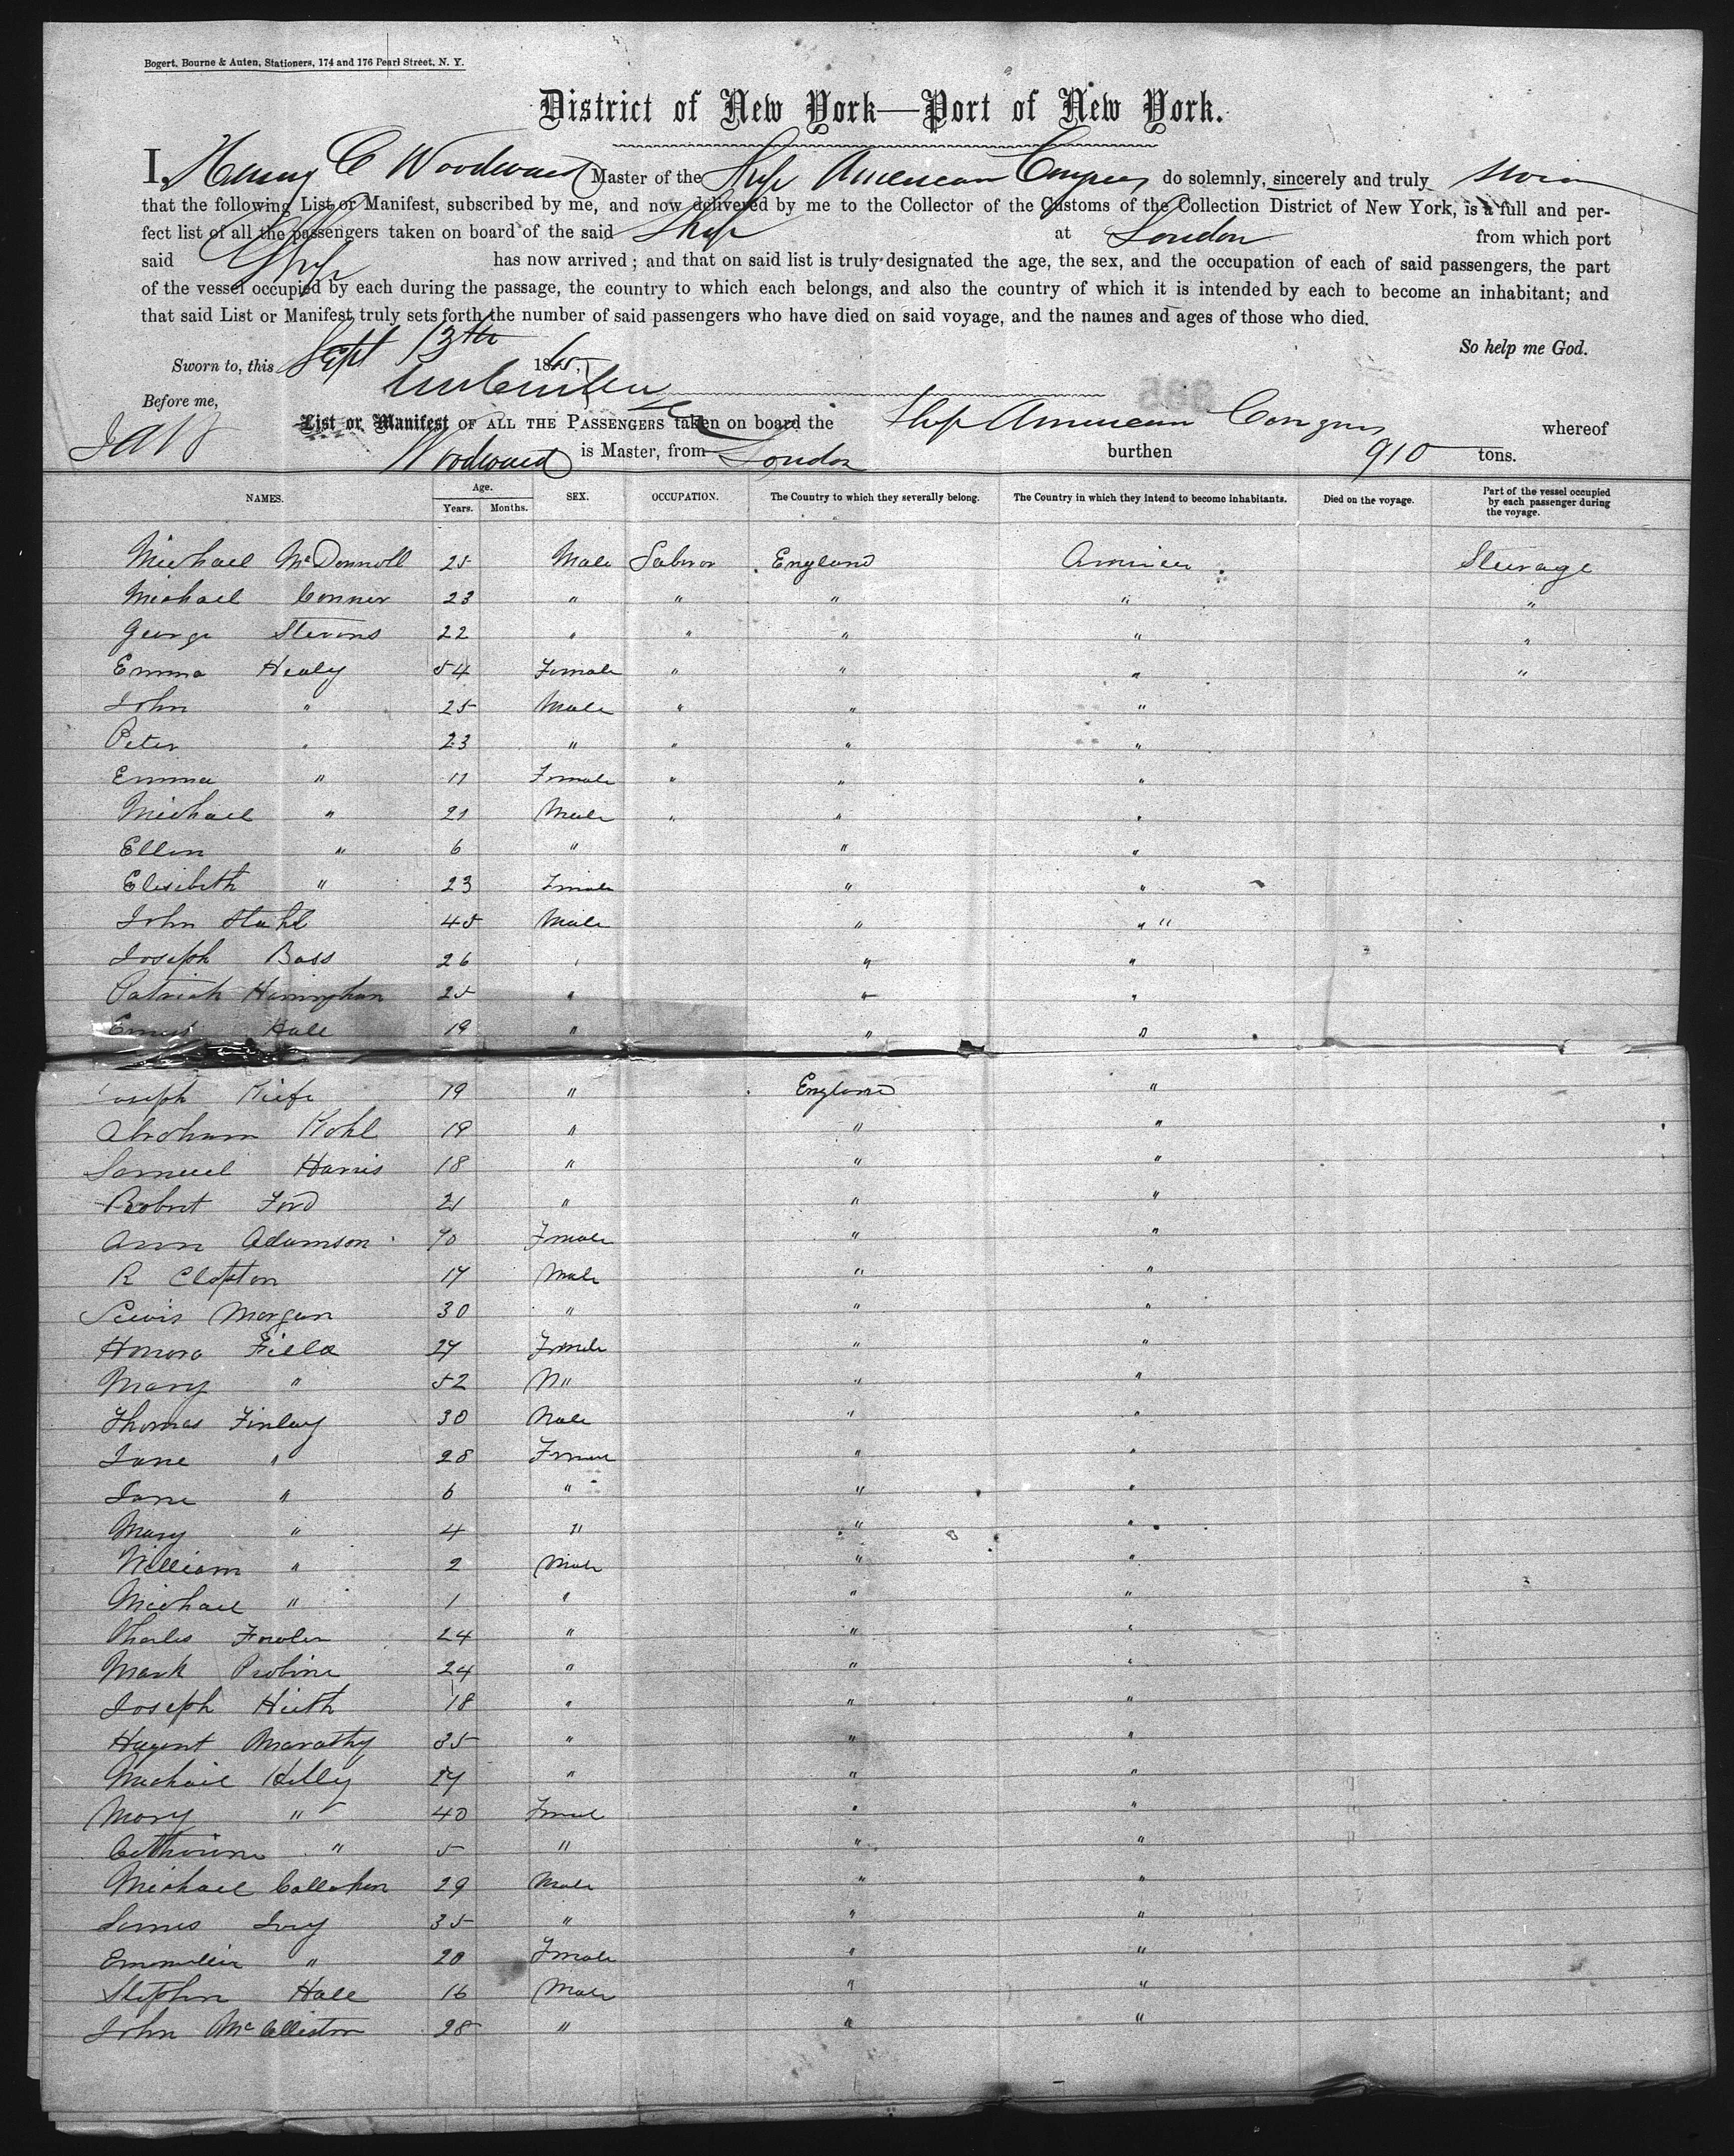 Bogert, Bourne & Auten, Stationers, 174 and 176 Pearl Street, N. Y.
District of New York—Port of New York.
I, Henry C Woodward Master of the Ship American Congress do solemnly, sincerely and truly swear
that the following List or Manifest, subscribed by me, and now delivered by me to the Collector of the Customs of the Collection District of New York, is a full and per-
fect list of all the passengers taken on board of the said Ship at London from which port
said Ship has now arrived; and that on said list is truly designated the age, the sex, and the occupation of each of said passengers, the part
of the vessel occupied by each during the passage, the country to which each belongs, and also the country of which it is intended by each to become an inhabitant; and
that said List or Manifest truly sets forth the number of said passengers who have died on said voyage, and the names and ages of those who died.
So help me God.
Sworn to, this Sept 13th 186
Before me,
List or Manifest OF ALL THE PASSENGERS taken on board the Ship American Congress whereof
Woodward is Master, from London burthen 910 tons.
NAMES. Age. Years. Months. SEX. OCCUPATION. The Country to which they severally belong. The Country in which they intend to become inhabitants. Died on the voyage. Part of the vessel occupied by each passenger during the voyage.
Michael McDonnell 25 Male Labor England America Steerage
Michael Conner 23 " " " " "
George Stevens 22 " " " " "
Emma Healy 54 Female " " " "
John " 25 Male " " "
Peter " 23 " " " "
Emma " 11 Female " " "
Michael " 21 Male " " "
Ellen " 6 " " "
Elisibeth " 23 Female " "
John Stahl 45 Male " " "
Joseph Bass 26 " " "
Patrick 25 " " "
Ernest Hall 19 " " "
Joseph Kiefe 19 " England "
Abraham Kohl 19 " " "
Samuel Harris 18 " " "
Robert Ford 21 " " "
Ann Adamson 70 Female " "
R Clopton 17 Male " "
Lewis Morgan 30 " " "
Honora Field 27 Female " "
Mary " 52 " " "
Thomas Finlay 30 Male " "
Jane " 28 Female " "
Jane " 6 " " "
Mary " 4 " " "
William " 2 Male " "
Michael " 1 " " "
Charles Fowler 24 " " "
Mark Probine 24 " " "
Joseph Hieth 18 " " "
35 " " "
Michael Kelly 27 " " "
Mary " 40 Female " "
Catherine " 5 " " "
Michael Callahan 29 Male " "
James Ivry 35 " " "
" 20 Female " "
Stephen Hall 16 Male " "
John McCalliston 28 " " "